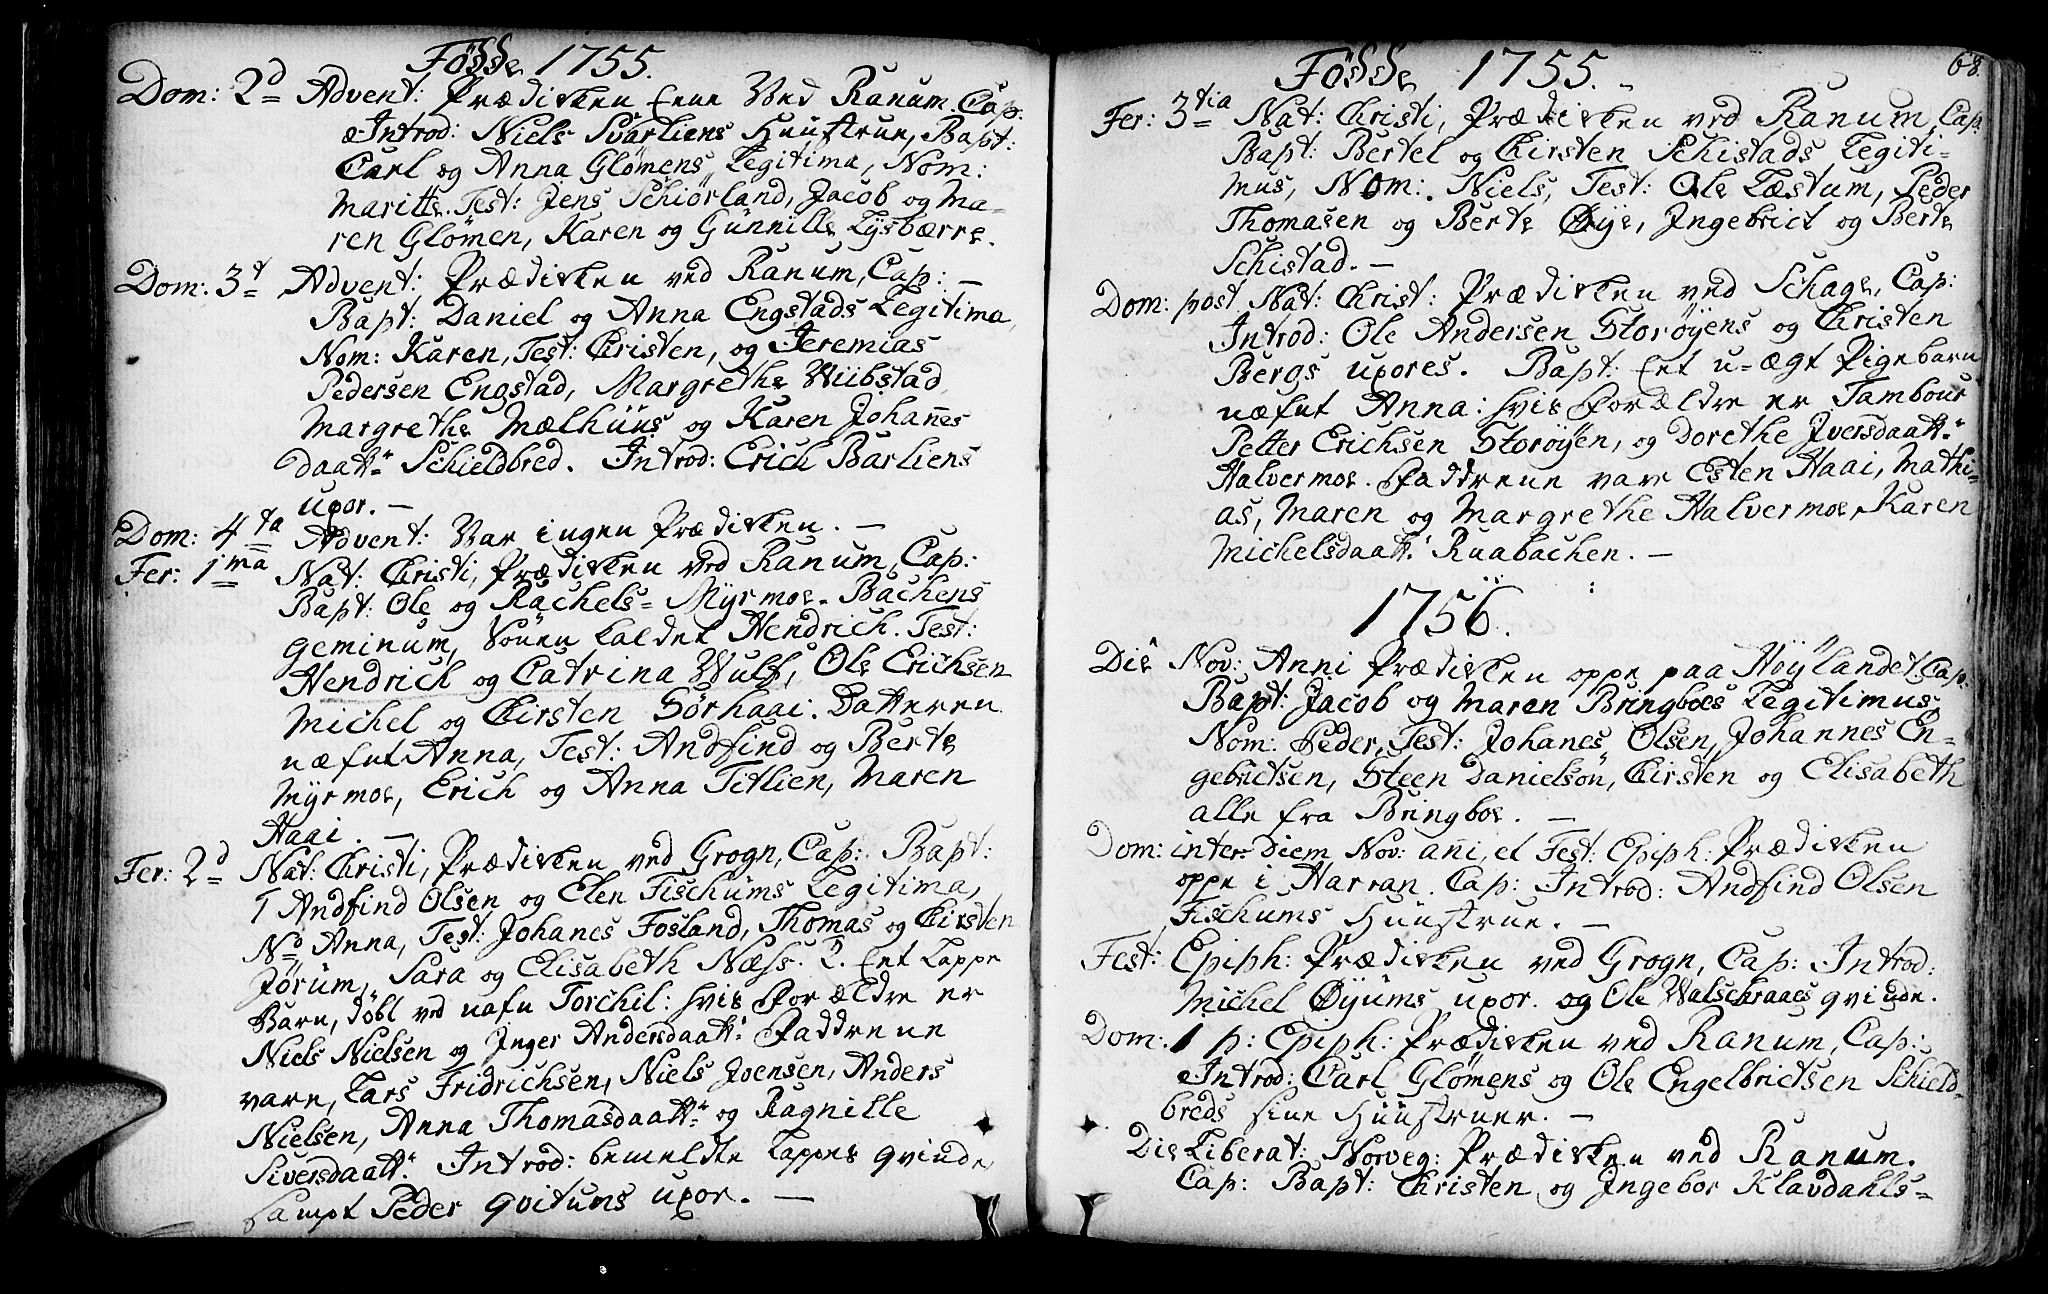 Födde 1755.
Dom: 2d Advent: Prædicken Ene Ved Ranum. Cap:
Introd: Niels Svarliens Huustrue, Bapt:
Carl og Anna Glömens Legitima, Nom:
Maritte. Test: Jens Schiörland, Jacob og Ma-
ren Glömen, Karen og Günnille Lysbærre.
Dom: 3t Advent: Prædicken ved Ranum, Cap: -
Bapt: Daniel og Anna Engstads Legitima,
Nom: Karen, Test: Christen, og Jeremias
Pedersen Engstad, Margrethe Wiibstad,
Margrethe Mælhüus og Karen Johannes
daatt: Schieldbred. Introd: Erich Barliens
uxor. -
Dom: 4ta Advent: Var ingen Prædicken. -
Fer: 1ma Nat: Christi, Prædicken ved Ranum, Cap:
Bapt: Ole og Rachels= Myrmoe- Bachens
geminum, Sönen kaldet Hendrich. Test:
Hendrich og Catrina Wulf, Ole Erichsen
Michel og Chirsten Sörhaai. Datteren
næfnt Anna, Test: Andfind og Berte
Myrmoe, Erich og Anna Titlien, Maren
Haai. -
Fer: 2d Nat: Christi, Prædicken ved Grogn, Cap: Bapt:
1 Andfind Olsen og Elen Fischums Legitima,
No Anna, Test: Johanes Fosland, Thomas og Chirsten
Jörum, Sara og Elisabeth Næss. 2. Eet Lappe
Barn, döbt ved nafn Torchil: hvis Forældre er
Niels Nielsen og Inger Andersdaatt: Faddrene
vare, Lars Fridrichsen, Niels Joensen, Anders
Nielsen, Anna Thomasdaatt: og Ragnille
Siversdaatt: Introd: bemeldte Lappes qvinde
sampt Peder qvitums uxor. -
Födde 1755.
68.
Fer: 3tia Nat: Christi, Prædicken ved Ranum, Cap:
Bapt: Bertel og Chirsten Schistads Legiti-
mus, Nom: Niels, Test: Ole Læstum, Peder
Thomasen og Berte Øye, Ingebrict og Berte
Schistad. -
Dom: post Nat: Christ: Prædicken ved Schage, Cap:
Introd: Ole Andersen Storöyens og Christen
Bergs uxores. Bapt: Eet u-ægt Pigebarn
næfnt Anna: hvis Forældre er Tambour
Petter Erichsen Storöyen, og Dorethe Iversdaatt:
Halvermoe. Faddrene var Esten Haai, Mathi-
as, Maren og Margrethe Halvermoe, Karen
Michelsdaatt: Raabachen. -
1756.
Die Nov: Anni Prædicken oppe paa Höylandet. Cap:
Bapt: Jacob og Maren Bringboes Legitimus,
Nom: Peder, Test: Johanes Olsen, Johannes En-
gebrictsen, Steen Danielsön, Chirsten og Elisabeth
alle fra Bringboe. -
Dom: inter Diem Nov: añi, et Fest: Epiph: Prædicken
oppe i Harran. Cap: Introd: Andfind Olsen
Fischums Huustrue. -
Fest: Epiph: Prædicken ved Grogn, Cap: Introd:
Michel Øyums uxor. og Ole Walschraaes qvinde.
Dom: 1 p: Epiph: Prædicken ved Ranum, Cap:
Introd: Carl Glömens og Ole Engelbrictsen Schield-
breds sine Hüustruer. -
Die Liberat: Norveg: Prædicken ved Ranum.
Cap: Bapt: Christen og Ingebor Klavdahls=